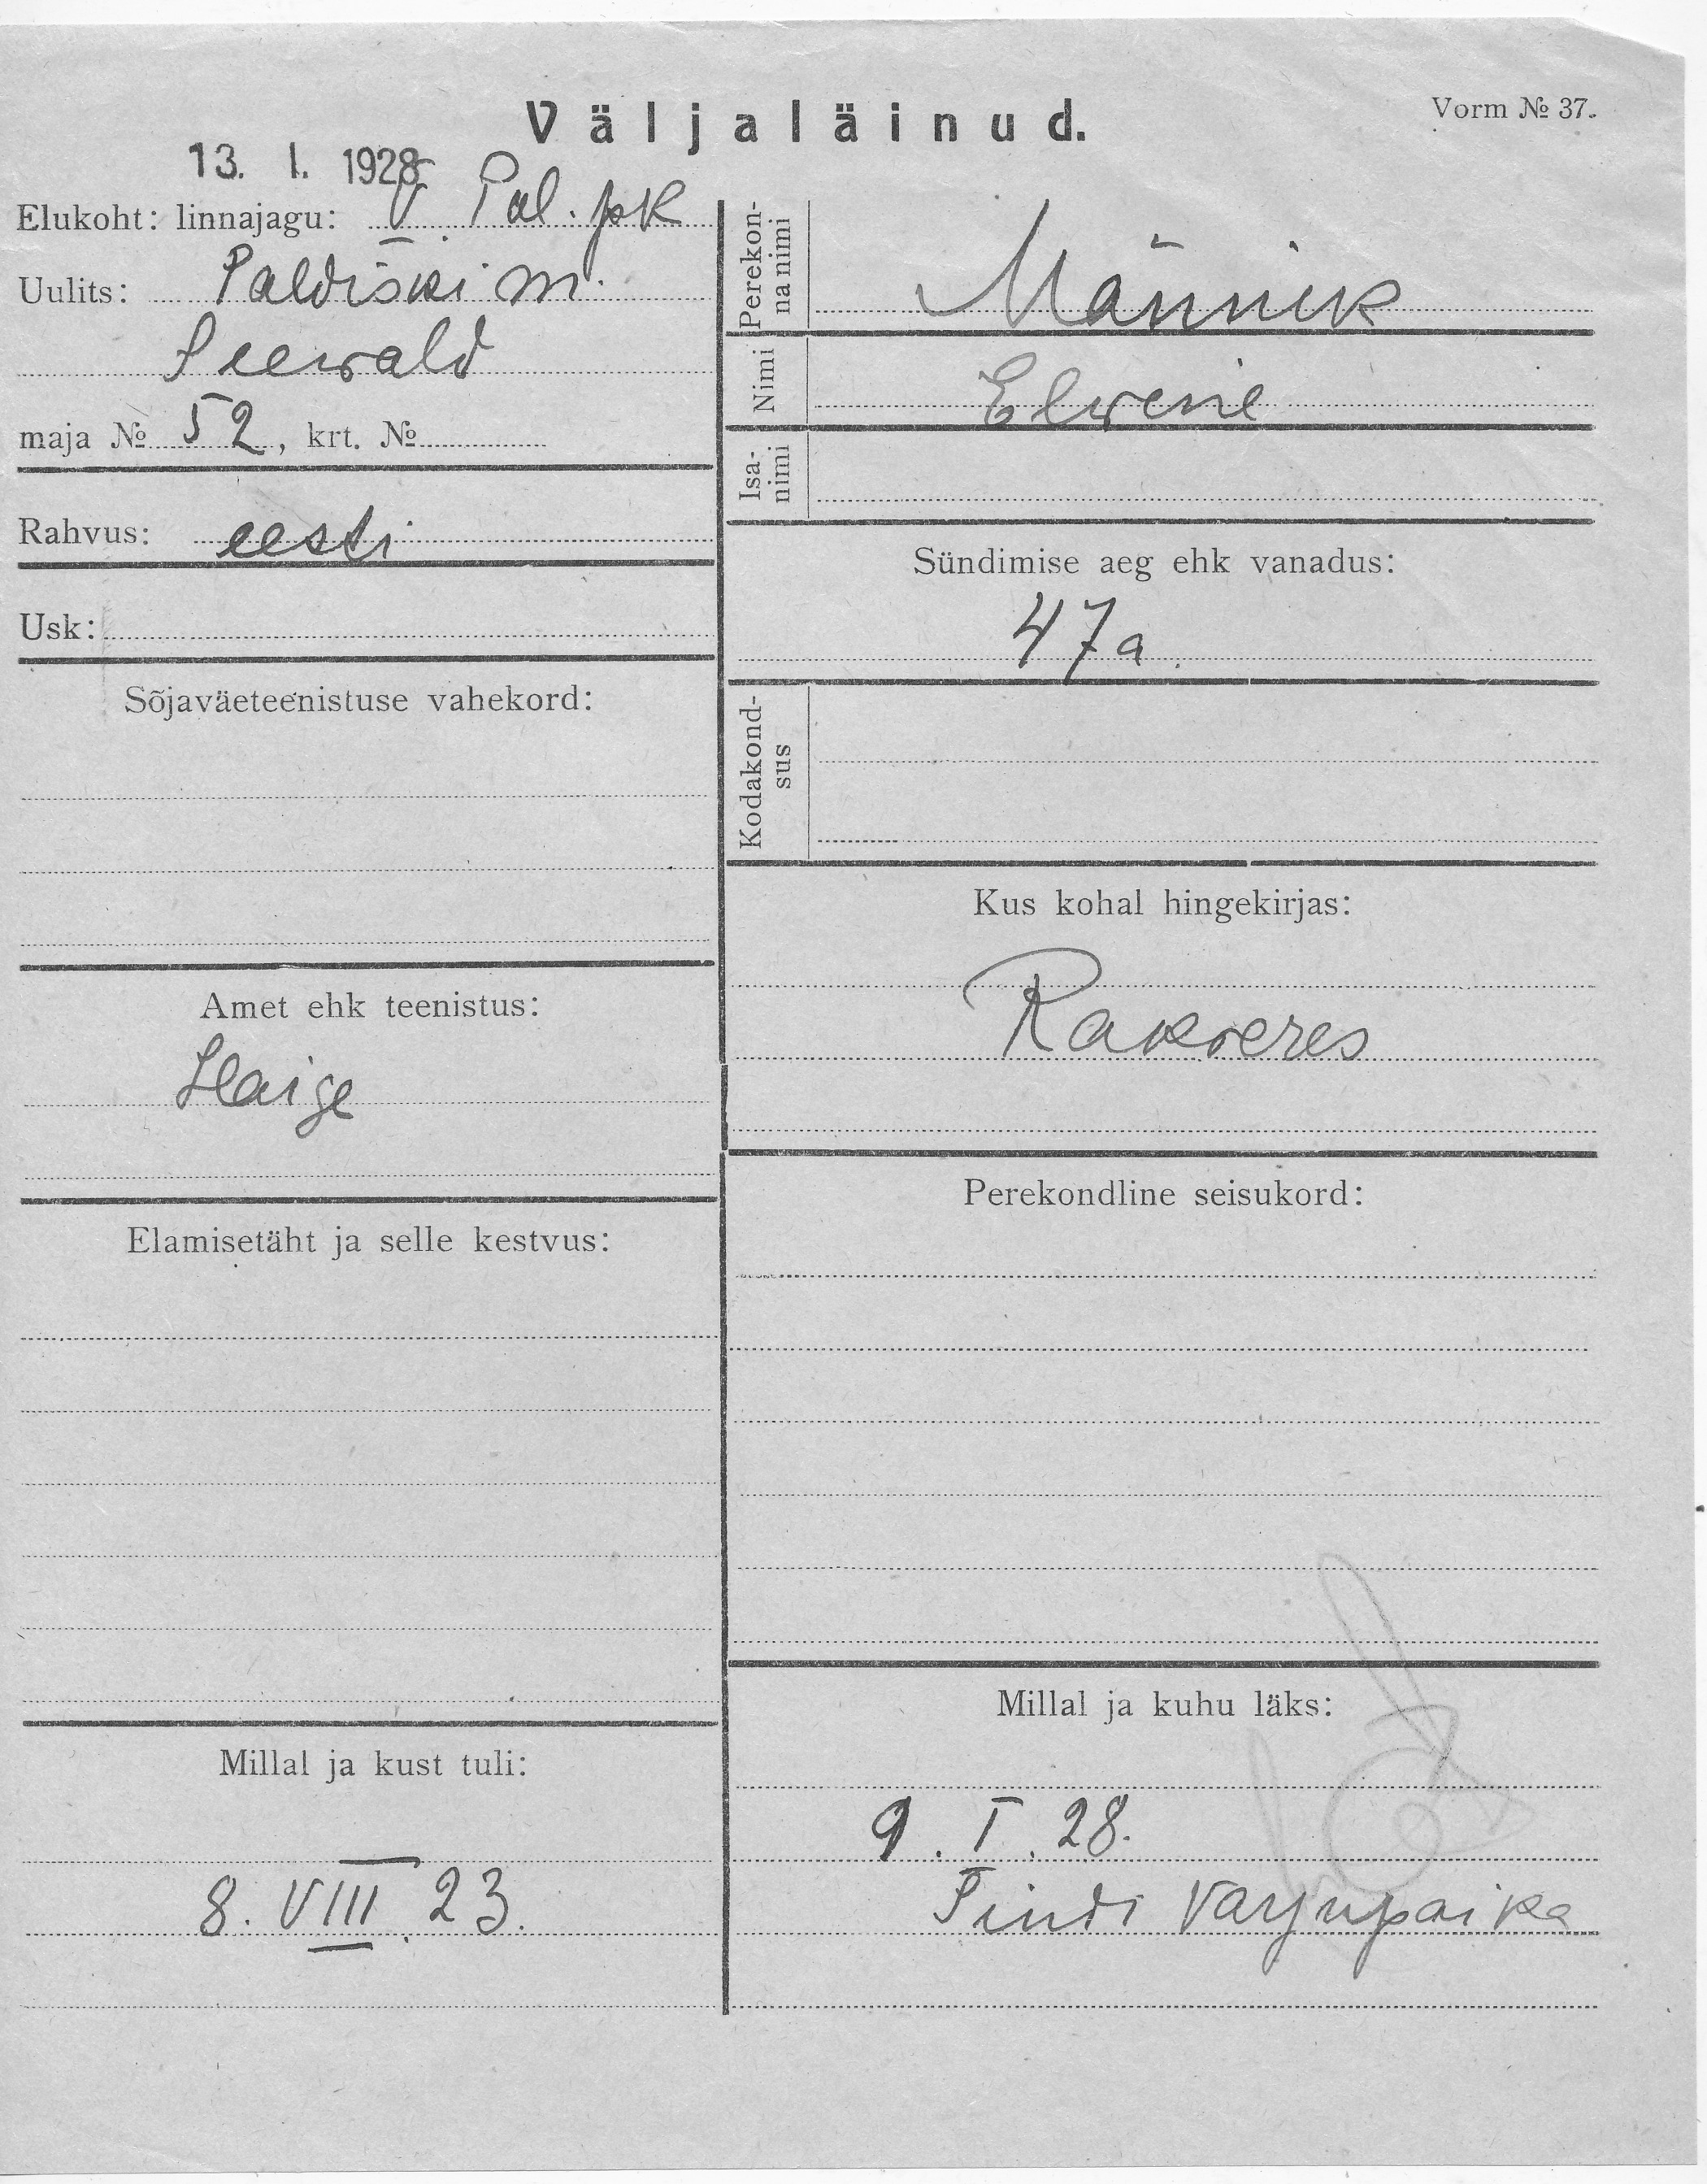 Väljaläinud.
Vorm № 37.
13. I. 1928
Elukoht: linnajagu: V. Pal. jsk
Uulits: Paldiski m.
Seewald
maja № 52, krt. №
Rahvus: eesti
Usk:
Sõjaväeteenistuse vahekord:
Amet ehk teenistus:
Haige
Elamisetäht ja selle kestvus:
Millal ja kust tuli:
8. VIII. 23.
Perekon-
na nimi
Männik
Nimi
Elwine
Isa-
nimi
Sündimise aeg ehk vanadus:
47 a.
Kodakond-
sus
Kus kohal hingekirjas:
Rakveres
Perekondline seisukord:
Millal ja kuhu läks:
9. I. 28.
Sindi Varjupaika